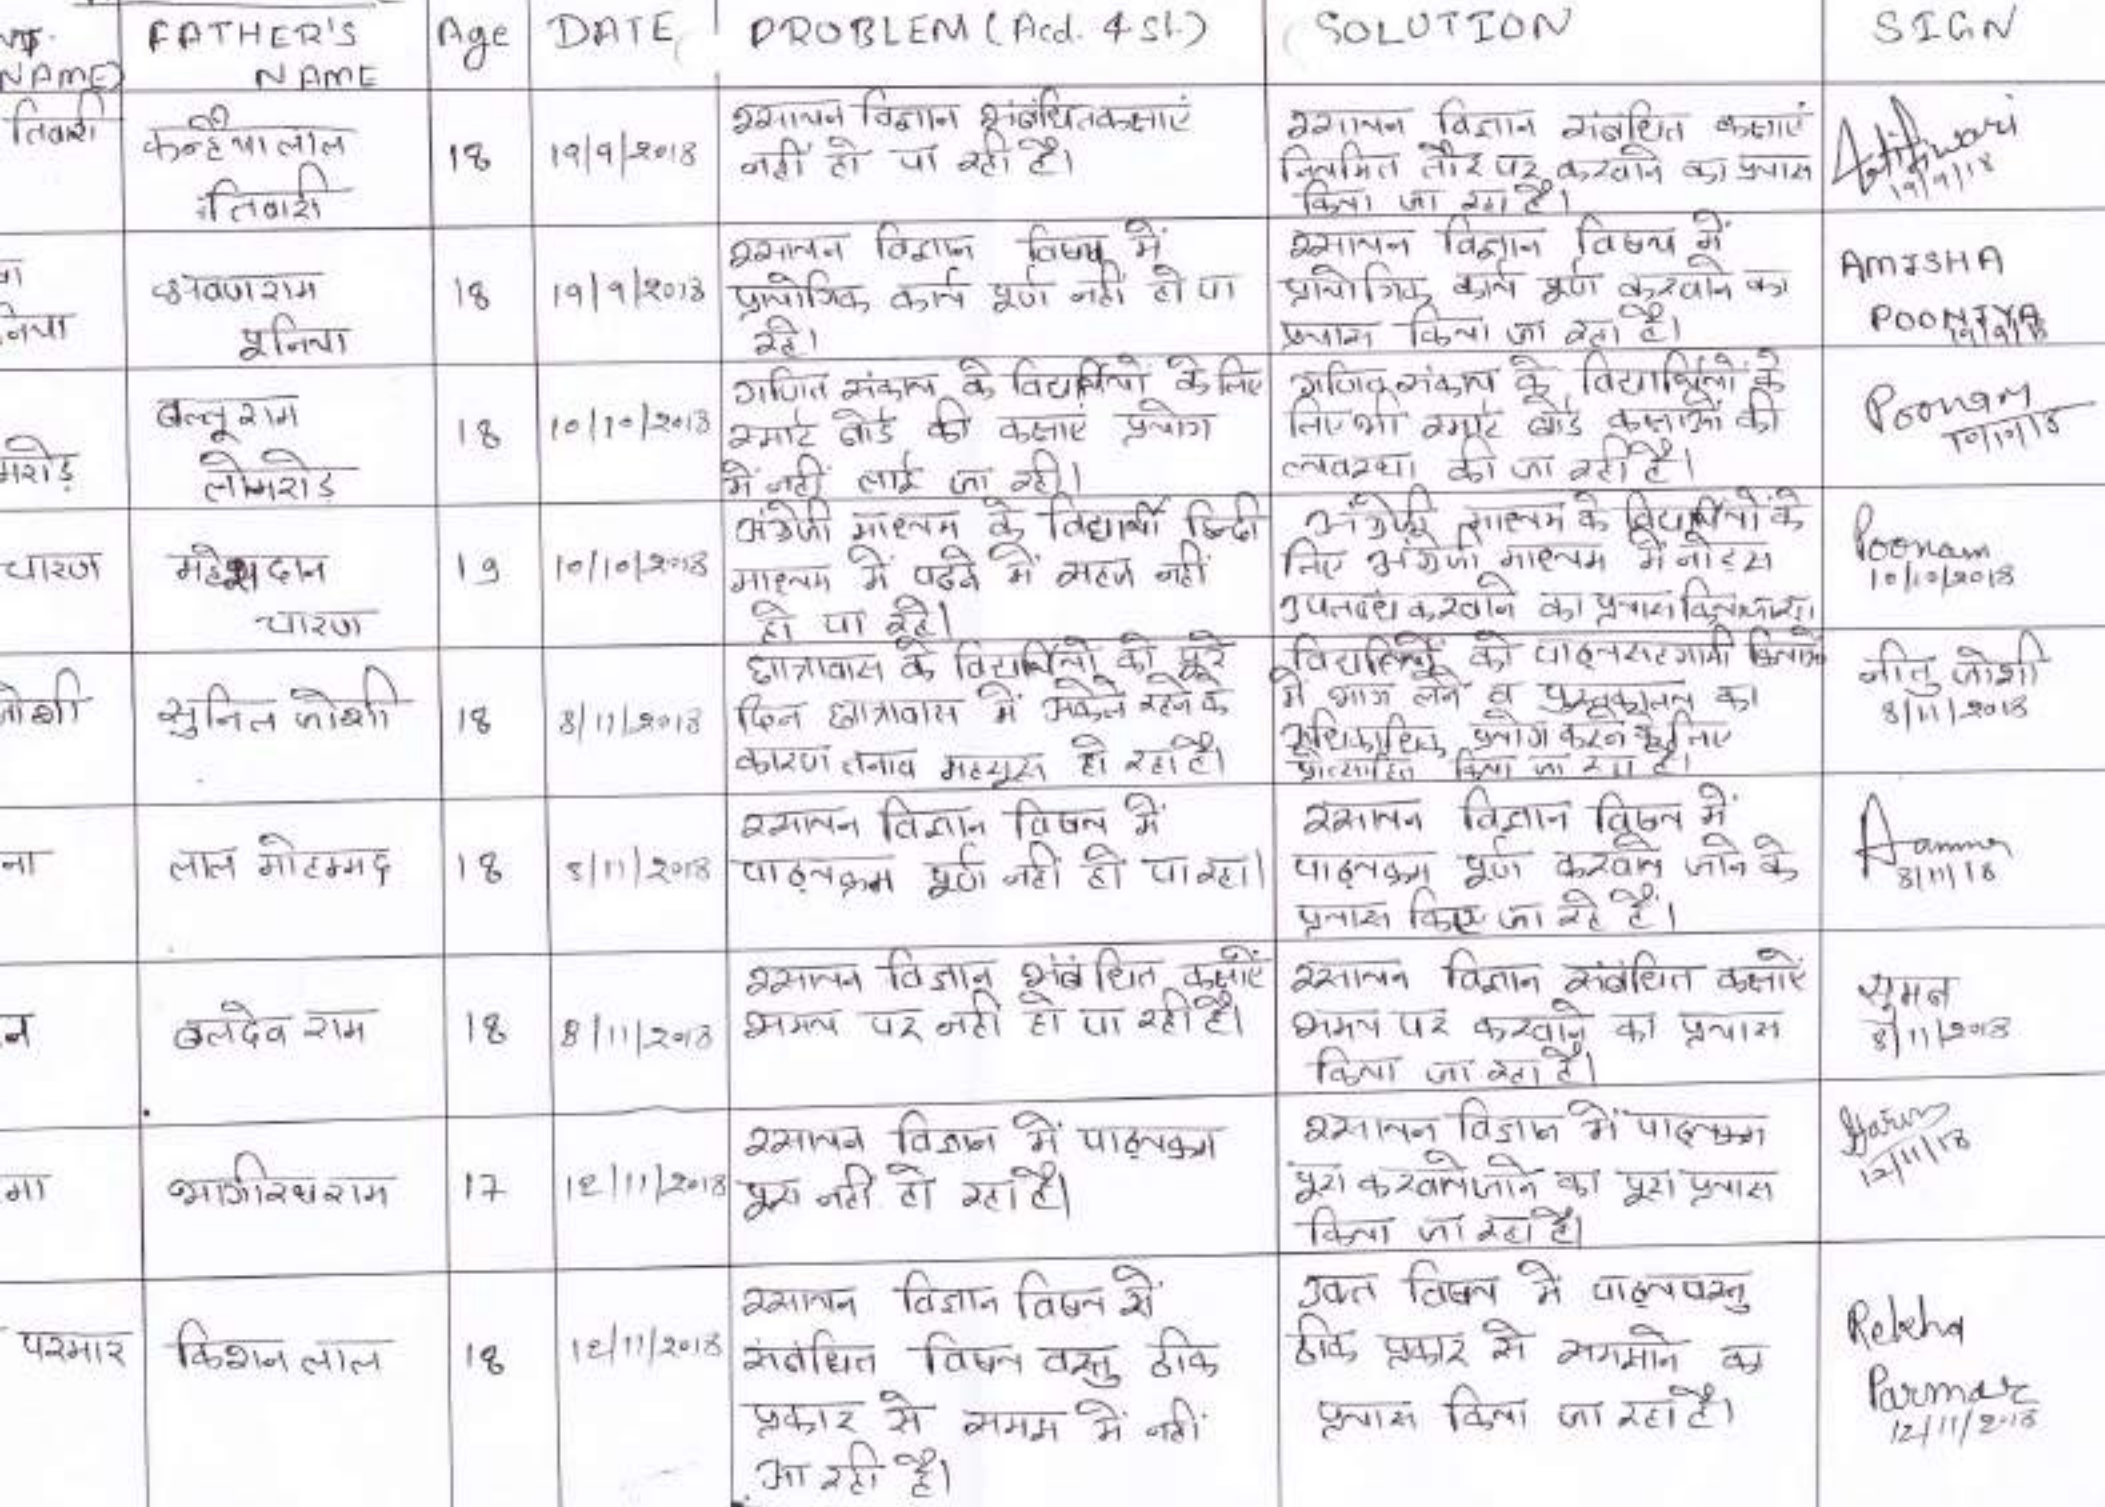 NAME) FATHER'S NAME Age DATE PROBLEM (Acd. & St.) SOLUTION SIGN
तिवारी कन्हैयालाल तिवारी 18 19/9/2018
रसायन विज्ञान संबंधित कक्षाएं
नहीं हो पा रही है।
रसायन विज्ञान संबंधित कक्षाएं
नियमित तौर पर करवाने का प्रयास
किया जा रहा है।
19/9/18
निया श्रवणराम पूनिया 18 19/9/2018
रसायन विज्ञान विषय में
प्रायोगिक कार्य पूर्ण नहीं हो पा
रहे।
रसायन विज्ञान विषय में
प्रायोगिक कार्य पूर्ण करवाने का
प्रयास किया जा रहा है।
AMISHA
POONIYA
19/9/18
मरोड़ बल्तूराम लोमरोड़ 18 10/10/2018
गणित संकाय के विद्यार्थियों के लिए
स्मार्ट बोर्ड की कक्षाएं प्रयोग
में नहीं लाई जा रही।
गणित संकाय के विद्यार्थियों के
लिए भी स्मार्ट बोर्ड कक्षाओं की
व्यवस्था की जा रही है।
Poonam
10/10/18
चारण महेशदान चारण 19 10/10/2018
अंग्रेजी माध्यम के विद्यार्थी हिन्दी
माध्यम में पढने में सहज नहीं
हो पा रहे।
अंग्रेजी माध्यम के विद्यार्थियों के
लिए अंग्रेजी माध्यम में नोट्स
उपलब्ध करवाने का प्रयास
Poonam
10/10/2018
जोशी सुनिल जोशी 18 8/11/2018
छात्रावास के विद्यार्थियों को पूरे
दिन छात्रावास में अकेले रहने के
कारण तनाव महसूस हो रहा है।
विद्यार्थियों को पाठ्यसहगामी
में भाग लेने व पुस्तकालय का
अधिकाधिक प्रयोग करने के लिए
प्रोत्साहित किया जा रहा है।
नीतु जोशी
8/11/2018
ना लाल मोहम्मद 18 8/11/2018
रसायन विज्ञान विषय में
पाठ्यक्रम पूर्ण नहीं हो पा रहा।
रसायन विज्ञान विषय में
पाठ्यक्रम पूर्ण करवाये जाने के
प्रयास किए जा रहे हैं।
8/11/18
न बलदेव राम 18 8/11/2018
रसायन विज्ञान संबंधित कक्षाएं
समय पर नहीं हो पा रही है।
रसायन विज्ञान संबंधित कक्षाएं
समय पर करवाने का प्रयास
किया जा रहा है।
सुमन
8/11/2018
मा भागीरथराम 17 12/11/2018
रसायन विज्ञान में पाठ्यक्रम
पूरा नहीं हो रहा है।
रसायन विज्ञान में पाठ्यक्रम
पूरा करवाये जाने का पूरा प्रयास
किया जा रहा है।
12/11/18
परमार किशन लाल 18 12/11/2018
रसायन विज्ञान विषय से
संबंधित विषय वस्तु ठीक
प्रकार से समझ में नहीं
आ रही है।
उक्त विषय में पाठ्यवस्तु
ठीक प्रकार से समझाने का
प्रयास किया जा रहा है।
Rekha
Parmar
12/11/2018